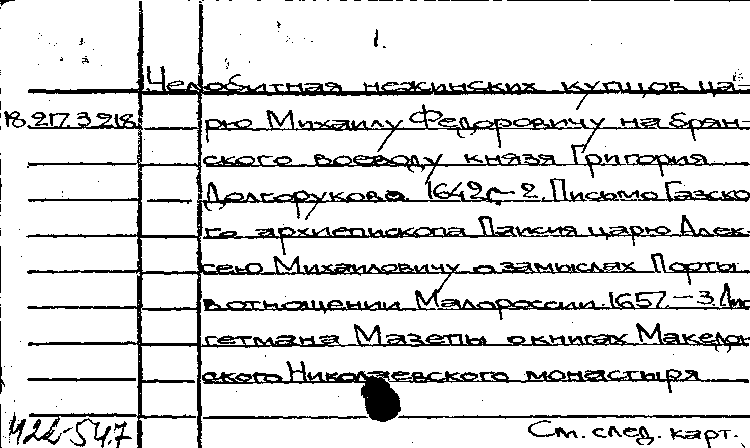 1.
Челобитная нежинских купцов ца-
18.217.3.218 рю Михаилу Федоровичу на брян-
ского воеводу князя Григория
Долгорукова 1642г.-2. Письмо Газско
го архиепископа Паисия царю Алек-
сею Михайловичу о замыслах Порты
в отношении Малороссии. 1657.-3.
гетмана Мазепы о книгах Македон
ского Николаевского монастыря
422-547 См. след. карт.